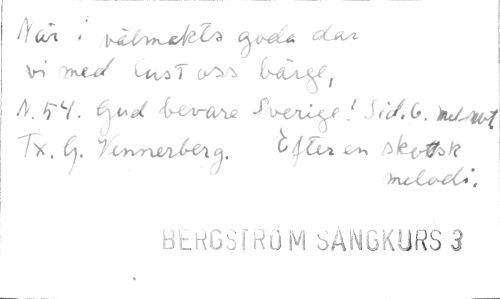 När i välmakts goda dar
vi med lust oss bärge,
N. 54. Gud bevare Sverige! Sid. 6. mel. not.
Tx. G. Wennerberg. Efter en skottsk
melodi.
BERGSTRÖM SÅNGKURS 3